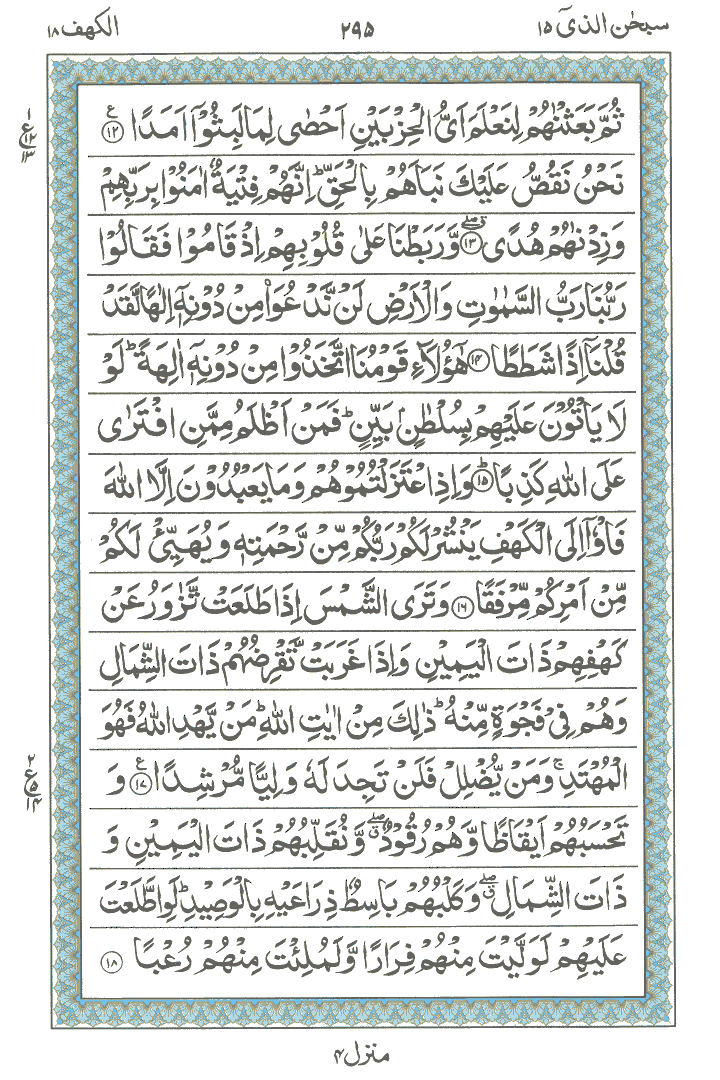 سبحٰن الذیٓ ۱۵
۲۹۵
الكهف ۱۸
ثُمَّ بَعَثْنٰهُمْ لِنَعْلَمَ اَىُّ الْحِزْبَيْنِ اَحْصٰى لِمَا لَبِثُوْۤا اَمَدًا ۱۲ ع
۱ ع ۱۲ ۱۳
نَحْنُ نَقُصُّ عَلَيْكَ نَبَاَهُمْ بِالْحَقِّ ؕ اِنَّهُمْ فِتْيَةٌ اٰمَنُوْا بِرَبِّهِمْ
وَزِدْنٰهُمْ هُدًى ۱۳ ۖق وَّرَبَطْنَا عَلٰى قُلُوْبِهِمْ اِذْ قَامُوْا فَقَالُوْا
رَبُّنَا رَبُّ السَّمٰوٰتِ وَالْاَرْضِ لَنْ نَّدْعُوَا۟ مِنْ دُوْنِهٖۤ اِلٰهًا لَّقَدْ
قُلْنَاۤ اِذًا شَطَطًا ۱۴ هٰۤؤُلَآءِ قَوْمُنَا اتَّخَذُوْا مِنْ دُوْنِهٖۤ اٰلِهَةً ؕ لَوْ
لَا يَاْتُوْنَ عَلَيْهِمْ بِسُلْطٰنٍۭ بَيِّنٍ ؕ فَمَنْ اَظْلَمُ مِمَّنِ افْتَرٰى
عَلَى اللّٰهِ كَذِبًا ۱۵ ؕ وَاِذِ اعْتَزَلْتُمُوْهُمْ وَمَا يَعْبُدُوْنَ اِلَّا اللّٰهَ
فَاْوٗۤا اِلَى الْكَهْفِ يَنْشُرْ لَكُمْ رَبُّكُمْ مِّنْ رَّحْمَتِهٖ وَيُهَيِّئْ لَكُمْ
مِّنْ اَمْرِكُمْ مِّرْفَقًا ۱۶ وَتَرَى الشَّمْسَ اِذَا طَلَعَتْ تَّزٰوَرُ عَنْ
كَهْفِهِمْ ذَاتَ الْيَمِيْنِ وَاِذَا غَرَبَتْ تَّقْرِضُهُمْ ذَاتَ الشِّمَالِ
وَهُمْ فِىْ فَجْوَةٍ مِّنْهُ ؕ ذٰلِكَ مِنْ اٰيٰتِ اللّٰهِ ؕ مَنْ يَّهْدِ اللّٰهُ فَهُوَ
الْمُهْتَدِ ۚ وَمَنْ يُّضْلِلْ فَلَنْ تَجِدَ لَهٗ وَلِيًّا مُّرْشِدًا ۱۷ ع وَ
۲ ع ۵ ۱۴
تَحْسَبُهُمْ اَيْقَاظًا وَّهُمْ رُقُوْدٌ ۖق وَّنُقَلِّبُهُمْ ذَاتَ الْيَمِيْنِ وَ
ذَاتَ الشِّمَالِ ۖق وَكَلْبُهُمْ بَاسِطٌ ذِرَاعَيْهِ بِالْوَصِيْدِ ؕ لَوِ اطَّلَعْتَ
عَلَيْهِمْ لَوَلَّيْتَ مِنْهُمْ فِرَارًا وَّلَمُلِئْتَ مِنْهُمْ رُعْبًا ۱۸
منزل ۴